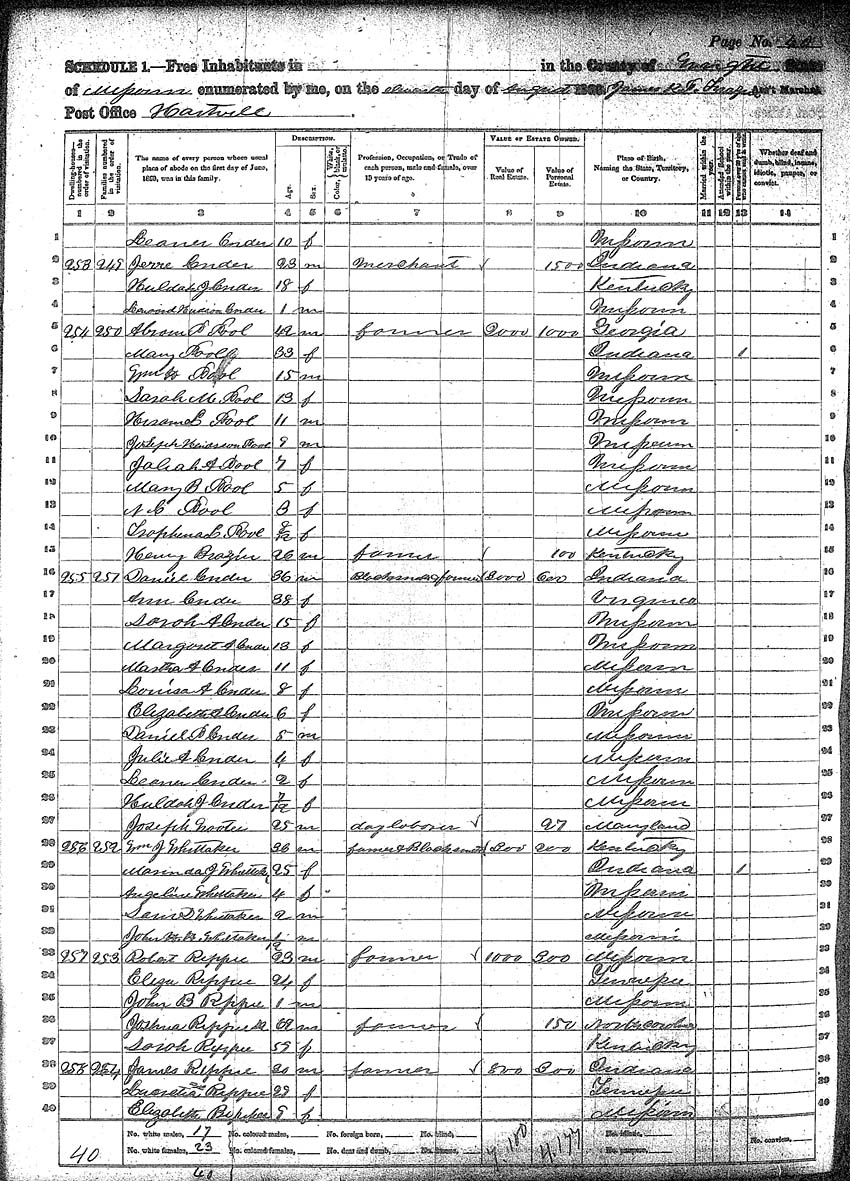 Page No. 40
SCHEDULE 1.—Free Inhabitants in in the County of Wright State
of Missouri enumerated by me, on the eleventh day of August 1860. Ass't Marshal.
Post Office Hartville
Dwelling-houses—numbered in the order of visitation.
Families numbered in the order of visitation.
The name of every person whose usual place of abode on the first day of June, 1860, was in this family.
DESCRIPTION.
Age.
Sex.
Color, White, black, or mulatto.
Profession, Occupation, or Trade of each person, male and female, over 15 years of age.
VALUE OF ESTATE OWNED.
Value of Real Estate.
Value of Personal Estate.
Place of Birth, Naming the State, Territory, or Country.
Married within the year.
Attended School within the year.
Persons over 20 y'rs of age who cannot read & write.
Whether deaf and dumb, blind, insane, idiotic, pauper, or convict.
1 2 3 4 5 6 7 8 9 10 11 12 13 14
1 Leaner Cender 10 f Missouri 1
2 253 249 Jerre Cender 23 m merchant 1500 Indiana 2
3 Huldah J Cender 18 f Kentucky 3
4 Hudson Cender 1 m Missouri 4
5 254 250 Abram B Pool 42 m farmer 1000 Georgia 5
6 Mary Pool 33 f Indiana 1 6
7 Wm Pool 15 m Missouri 7
8 Sarah M. Pool 13 f Missouri 8
9 Hiram L Pool 11 m Missouri 9
10 Joseph Hudson Pool 9 m Missouri 10
11 A Pool 7 f Missouri 11
12 Mary B Pool 5 f Missouri 12
13 N C Pool 3 f Missouri 13
14 L Pool f Missouri 14
15 Henry Brazier 26 m farmer 100 Kentucky 15
16 255 251 Daniel Cender 36 m Blacksmith & farmer 600 Indiana 16
17 Ann Cender 38 f Virginia 17
18 Sarah A Cender 15 f Missouri 18
19 Margaret A Cender 13 f Missouri 19
20 Martha A Cender 11 f Missouri 20
21 Louisa A Cender 8 f Missouri 21
22 Elizabeth Cender 6 f Missouri 22
23 Daniel B Cender 5 m Missouri 23
24 Julie A Cender 4 f Missouri 24
25 Leaner Cender 2 f Missouri 25
26 Huldah J Cender 7/12 f Missouri 26
27 Joseph 25 m day laborer 27 Maryland 27
28 256 252 Wm J Whittaker 36 m farmer & Blacksmith 200 Kentucky 28
29 Marinda J Whittaker 25 f Indiana 1 29
30 Angeline Whittaker 4 f Missouri 30
31 Saml D Whittaker 2 m Missouri 31
32 John Whittaker m Missouri 32
33 257 253 Robert Rippee 23 m farmer 1000 300 Missouri 33
34 Eliza Rippee 24 f Tennessee 34
35 John B Rippee 1 m Missouri 35
36 Joshua Rippee m farmer 150 North Carolina 36
37 Sarah Rippee 59 f Kentucky 37
38 258 254 James Rippee 30 m farmer 800 300 Indiana 38
39 Lucretia Rippee f Tennessee 39
40 Elizabeth Rippee 9 f Missouri 40
No. white males, 17 No. colored males, No. foreign born, No. blind, No. idiotic, No. convicts,
40 No. white females, 23 No. colored females, No. deaf and dumb, No. insane, No. paupers,
40